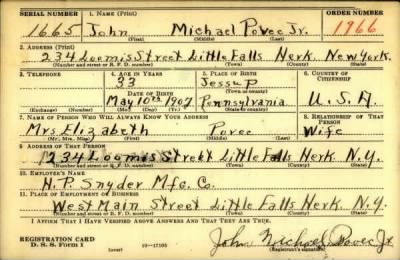 SERIAL NUMBER 1. NAME (Print) ORDER NUMBER
1665 John Michael Povec Jr. 1966
(First) (Middle) (Last)
2. ADDRESS (Print)
234 Loomis Street Little Falls Herk. New York.
(Number and street or R. F. D. number) (Town) (County) (State)
3. TELEPHONE 4. AGE IN YEARS 5. PLACE OF BIRTH 6. COUNTRY OF CITIZENSHIP
33 Jessup
DATE OF BIRTH (Town or county)
May 10th 1907 Pennsylvania U.S.A.
(Exchange) (Number) (Mo.) (Day) (Yr.) (State or country)
7. NAME OF PERSON WHO WILL ALWAYS KNOW YOUR ADDRESS 8. RELATIONSHIP OF THAT PERSON
Mrs. Elizabeth Povec Wife
(Mr., Mrs., Miss) (First) (Middle) (Last)
9. ADDRESS OF THAT PERSON
234 Loomis Street Little Falls Herk. N.Y.
(Number and street or R. F. D. number) (Town) (County) (State)
10. EMPLOYER'S NAME
H. P. Snyder Mfg. Co.
11. PLACE OF EMPLOYMENT OR BUSINESS
West Main Street Little Falls Herk. N.Y.
(Number and street or R. F. D. number) (Town) (County) (State)
I AFFIRM THAT I HAVE VERIFIED ABOVE ANSWERS AND THAT THEY ARE TRUE.
REGISTRATION CARD
D. S. S. FORM 1 (over) 16—17105 John Michael Povec Jr.
(Registrant's signature)